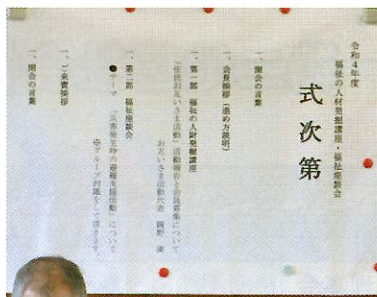 令和４年度
福祉の人材発掘講座・福祉座談会
式次第
一、開会の言葉
一、会長挨拶（進め方説明）
一、第一部　福祉の人材発掘講座
「住民お互いさま活動」活動報告と会員募集について
お互いさま活動代表
一、第二部　福祉座談会
●テーマ　「災害発生時の避難支援活動」について
※グループ討議をして頂きます。
一、ご来賓挨拶
一、閉会の言葉